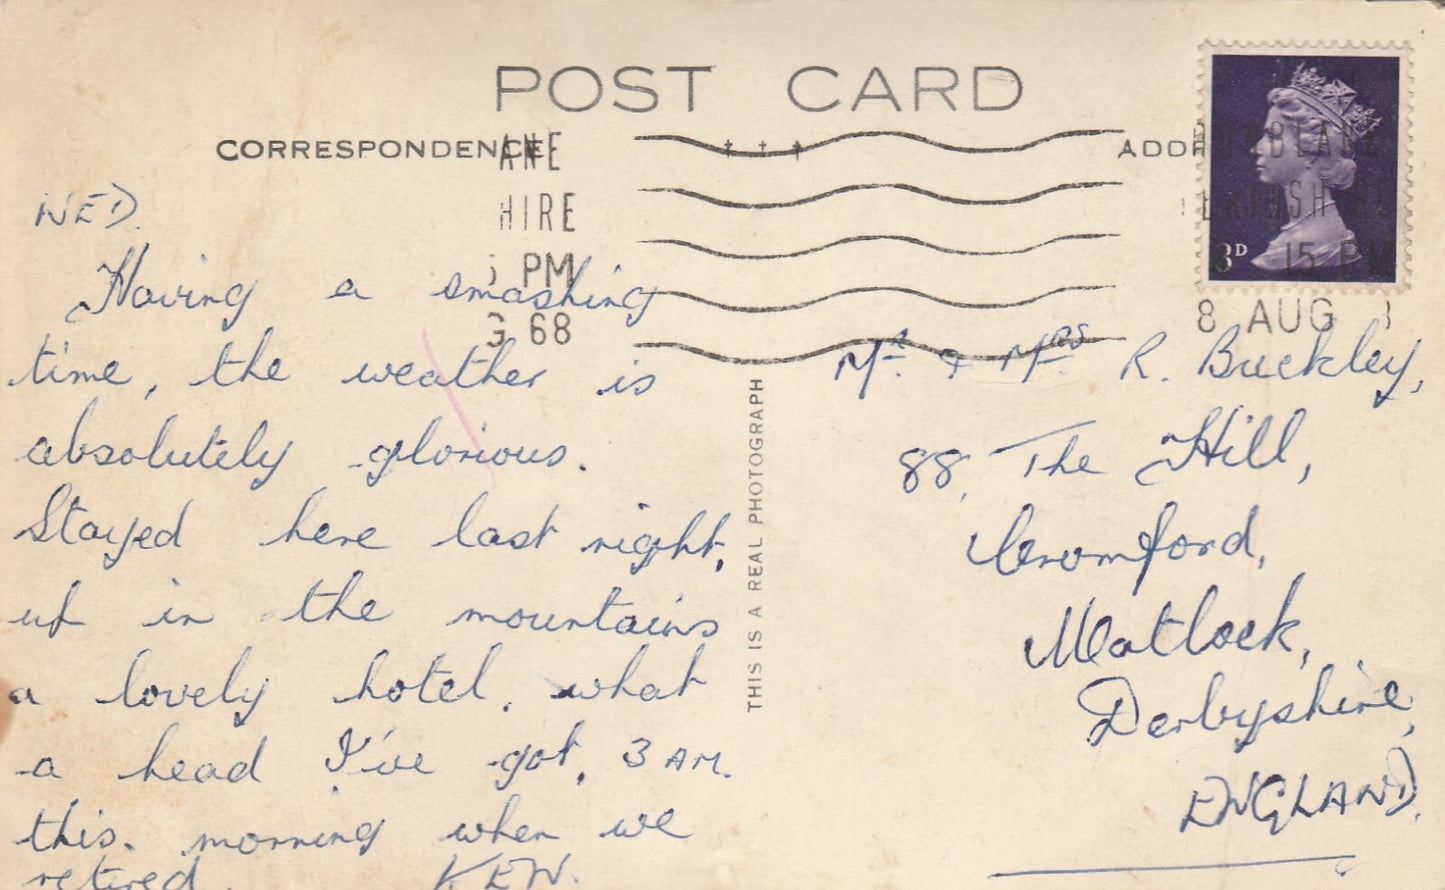 POST CARD
CORRESPONDENCE
ANE
HIRE
5 PM
G 68
WED.
Having a smashing
time, the weather is
absolutely glorious.
Stayed here last night,
up in the mountains
a lovely hotel. what
a head I've got, 3 AM.
this morning when we
retired. KEN.
THIS IS A REAL PHOTOGRAPH
ADDR
3D
15 PM
8 AUG
Mr. & Mrs R. Buckley,
88, The Hill,
Cromford,
Matlock,
Derbyshire,
ENGLAND.